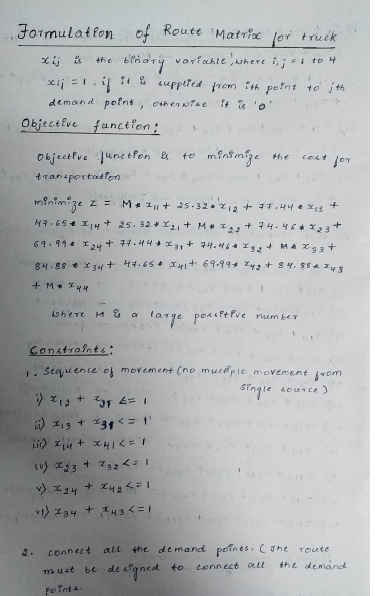 Formulation of Route Matrix for truck
xij is the binary variable, where i,j = 1 to 4
xij = 1, if it is supplied from ith point to jth
demand point, otherwise it is '0'
Objective function:
Objective function is to minimize the cost for
transportation
minimize Z = M* x11 + 25.32* x12 + 77.44* x13 +
47.65* x14 + 25.32* x21 + M* x22 + 74.46* x23 +
69.99* x24 + 77.44* x31 + 74.46* x32 + M* x33 +
84.88* x34 + 47.65* x41 + 69.99* x42 + 84.88* x43
+ M* x44
where M is a large possitive number
Constraints:
1. Sequence of movement (no multiple movement from
single source)
i) x12 + x21 <= 1
ii) x13 + x31 <= 1
iii) x14 + x41 <= 1
iv) x23 + x32 <= 1
v) x24 + x42 <= 1
vi) x34 + x43 <= 1
2. connect all the demand points. (The route
must be designed to connect all the demand
points.